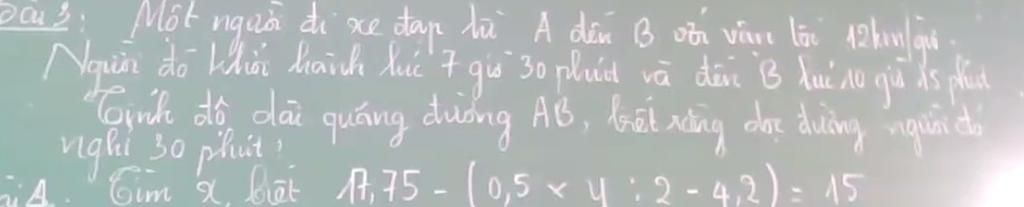 Bài 3: Một người đi xe đạp từ A đến B với vận tốc 12km/giờ.
Người đó khởi hành lúc 7 giờ 30 phút và đến B lúc 10 giờ 15 phút
Tính độ dài quãng đường AB, biết rằng dọc đường người đó
nghỉ 30 phút?
Bài 4. Tìm x, biết 17,75 - (0,5 × y : 2 - 4,2) = 15